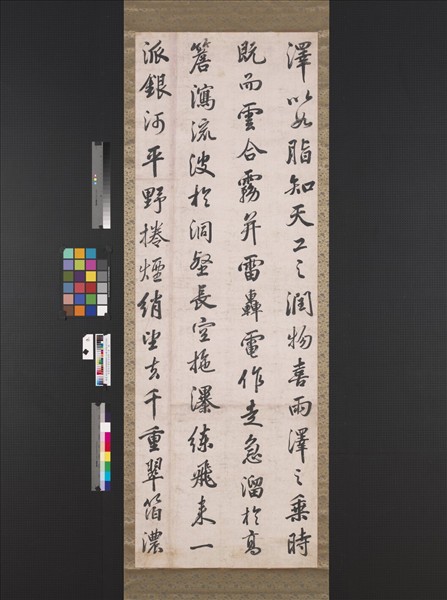 澤以如脂知天工之潤物喜雨澤之乘時
既而雲合霧并雷轟電作走急溜於高
簷瀉流波於洞壑長空拖瀑練飛来一
派銀河平野捲煙綃望去千重翠箔濃